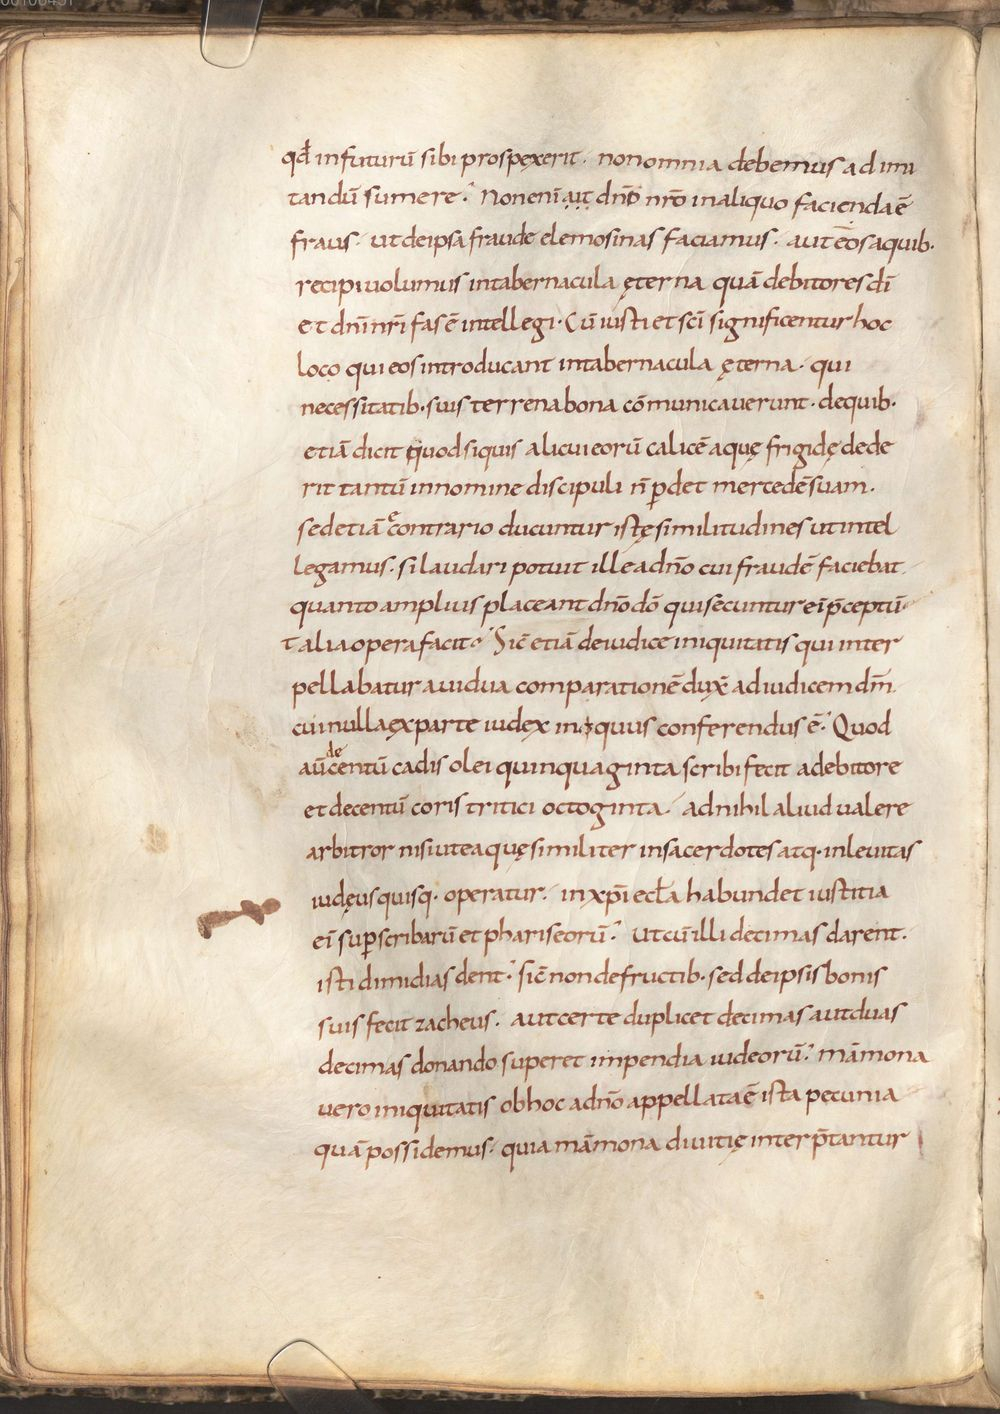 qđ infuturū sibi prospexerit. non omnia debemus ad imi
tandū sumere. Non enī aut dnō nrō in aliquo facienda ē
fraus. ut de ipsa fraude elemosinas faciamus. aut eos aquib.
recipi uolumus in tabernacula ęterna quā debitores dī
et dnī nrī fas ē intellegi. Cū iusti et scī significentur hoc
loco qui eos introducant in tabernacula ęterna. qui
necessitatib. suis terrena bona cōmunicauerunt. de quib.
etiā dicit quod siquis alicui eorū calicē aquę frigidę dede
rit tantū in nomine discipuli n̄ ꝑdet mercedē suam.
sed etiā e contrario ducuntur istę similitudines ut intel
legamus. si laudari potuit ille a dnō cui fraudē faciebat
quanto amplius placeant dnō dō qui secuntur eī p̄ceptū
talia opera facit. Sic̄ etiā de iudice iniquitatis qui inter
pellabatur a uidua comparationē dux̄ ad iudicem dm̄
cui nulla ex parte iudex iniquus conferendus ē. Quod
aū de centū cadis olei quinquaginta scribi fecit a debitore
et de centū coris tritici octoginta. ad nihil aliud ualere
arbitror nisi ut ea quę similiter in sacerdotes atq. in leuitas
iudęus quisq. operatur. in xp̄i eccła habundet iustitia
eī suꝑ scribarū et phariseorū. ut cū illi decimas darent.
isti dimidias dent. sic̄ non de fructib. sed de ipsis bonis
suis fecit zacheus. aut certe duplicet decimas aut duas
decimas donando superet impendia iudeorū. māmona
uero iniquitatis ob hoc a dnō appellata ē ista pecunia
quā possidemus. quia māmona diuitię interp̄tantur